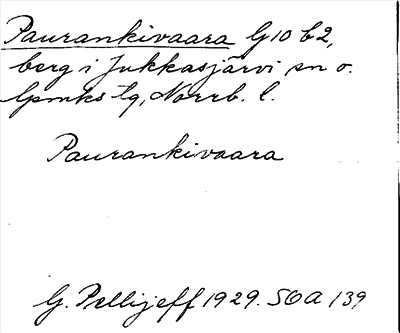 Paurankivaara G10 b2,
berg i Jukkasjärvi sn o.
lpmks tg, Norrb. l.
Paurankivaara
G. Pellijeff 1929. SOA 139